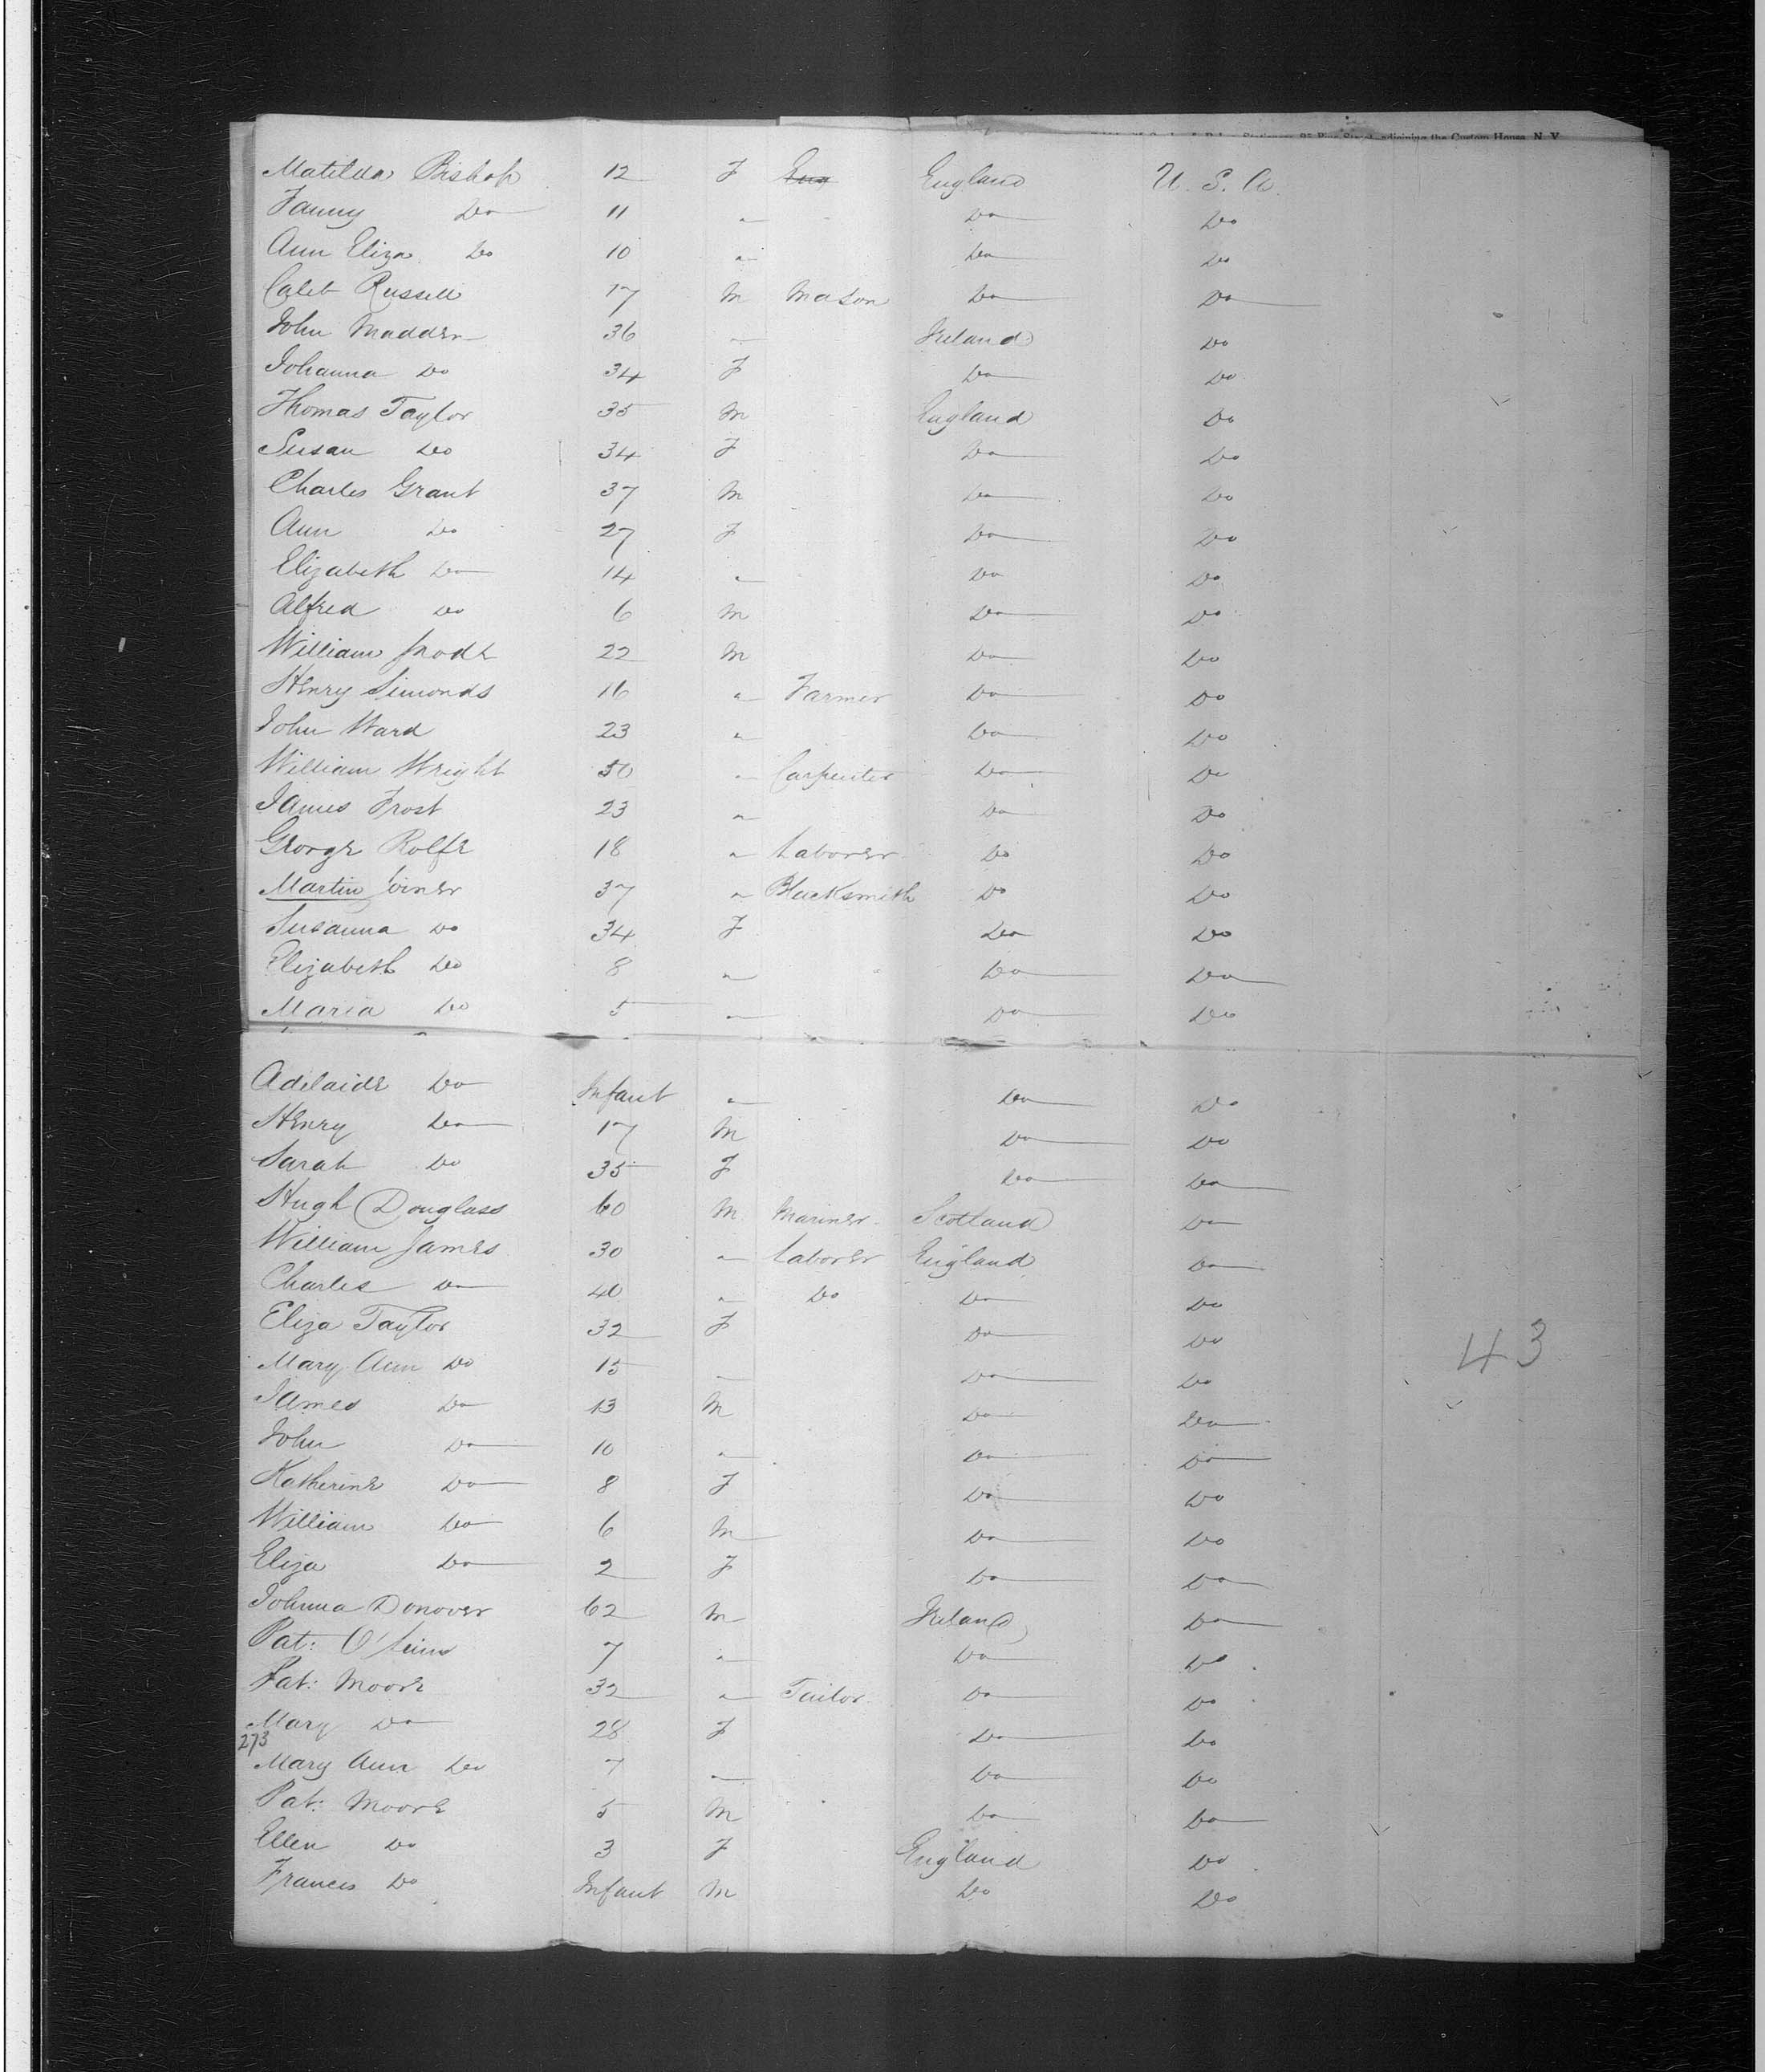 Stationers, 95 Pine Street adjoining the Custom House, N. Y.
Matilda Bishop 12 F Eng England U. S. A.
Fanny Do 11 " Do Do
Ann Eliza Do 10 " Do Do
Caleb Russell 17 M Mason Do Do
John Madden 36 " Ireland Do
Johanna Do 34 F Do Do
Thomas Taylor 35 M England Do
Susan Do 34 F Do Do
Charles Grant 37 M Do Do
Ann Do 27 F Do Do
Elizabeth Do 14 " Do Do
Alfred Do 6 M Do Do
William 22 M Do Do
Henry Simonds 16 " Farmer Do Do
John Ward 23 " Do Do
William Wright 50 " Carpenter Do Do
James Frost 23 " Do Do
George Rolfe 18 " Laborer Do Do
Martin Joiner 37 " Blacksmith Do Do
Susanna Do 34 F Do Do
Elizabeth Do 8 " Do Do
Maria Do 5 " Do Do
Adelaide Do Infant " Do Do
Henry Do 17 M Do Do
Sarah Do 35 F Do Do
Hugh Douglass 60 M Mariner Scotland Do
William James 30 " Laborer England Do
Charles Do 40 " Do Do Do
Eliza Taylor 32 F Do Do
43
Mary Ann Do 15 " Do Do
James Do 13 M Do Do
John Do 10 " Do Do
Katherine Do 8 F Do Do
William Do 6 M Do Do
Eliza Do 2 F Do Do
Johnna Donover 62 M Ireland Do
Pat: 7 " Do Do
Pat: Moore 32 " Tailor Do Do
Mary Do 28 F Do Do
273
Mary Ann Do 7 " Do Do
Pat: Moore 5 M Do Do
Ellen Do 3 F England Do
Frances Do Infant M Do Do